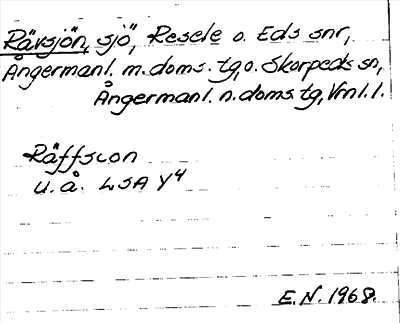 Rävsjön, sjö, Resele o. Eds snr,
Ångermanl. m. doms. tg, o. Skorpeds sn,
Ångermanl. n. doms. tg, Vrnl. l.
Räffsion
u. å. LSA Y4
E. N. 1968.